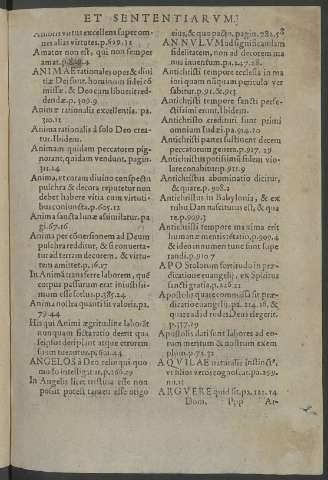 ET SENTENTIARVM.
Amoris virtus excellens super om-
nes alias virtutes. p. 629.15
Amator non est, qui non semper
amat. p.
ANIMAE rationales opes & divi
tiae Dei sunt, hominum fidei com
missae, & Deo cum
dendae. p. 309.9
Animae rationalis excellentia. pa.
310.11
Anima rationalis à solo Deo crea
tur. Ibidem.
Animam quidam peccatorem pig-
norant, quidam vendunt. pagin.
311.14
Anima, et coram divino conspectu
pulchra & decora reputetur non
debet habere vitia cum virtuti-
bus coniuncta. p. 605.12
Anima sancta lunae assimilatur. pa
gi. 67.16
Anima per conversionem ad Deum
pulchra redditur, & si converta-
tur ad terram decorem, & virtu-
tem amittet. p. 16.17
In Anima transferre laborem, que
corpus passurum erat iniustissi-
mum esse fertus. p. 385.24
Anima nostra quanti sit valoris. pa.
79.44
His qui Animi aegritudine laborat
nunquam sectatio deerit qua
seipsos decipiant atque errorem
suum tueantur. p. 621.44
ANGELOS à Deo celis qui quo
modo intelligatur. p. 260.29
In Angelis licet tristitia esse non
possit potest tamen esse origo
eius, & quo pacto. pagin. 281.58
ANNVLVM ad significandam
fidelitatem, non ad decorem ma
nus inuentum. pa. 147.28
Antichristi tempore ecclesia in ma
iori quam nunquam periculo ver
sabitur. p. 91. & 913.
Antichristi tempore sancti perse-
ctissimi erunt. Ibidem.
Antichristo credituri sunt primi
omnium Iudaei. pa. 914.20
Antichristi partes sustinent decem
peccatorum genera. p. 917.29
Antichristus potissimu fidem vio-
lare conabitur. p. 911.9
Antichristus abominatio dicitur,
& quare. p. 908.2
Antichristus in Babylonia, & ex
tribu Dan nasciturus est, & qua
re. p. 909.3
Antichristi tempore maxima erit
humanae mentis certatio. p. 909.4
& ideo in numen tunc sunt supe
randi. p. 910.7
APOStolorum fortitudo in prae-
dicatione evangelij, ex Spiritus
sancti gratia. p. 226.21
Apostolis quare commissa sit prae-
dicatio evangelij. pa. 214.18, &
quare ad id rudes Deus elegerit.
p. 317.19
Apostolati dati sunt labores ad eo-
rum meritum & nostrum exem
plum. p. 71.31
AQVILAE naturalis instinctus,
vt filios vero cognoscat. pa. 259.
nu. 21
ARGVERE quid sit. pa. 121.14
Dom. Ppp Ar-